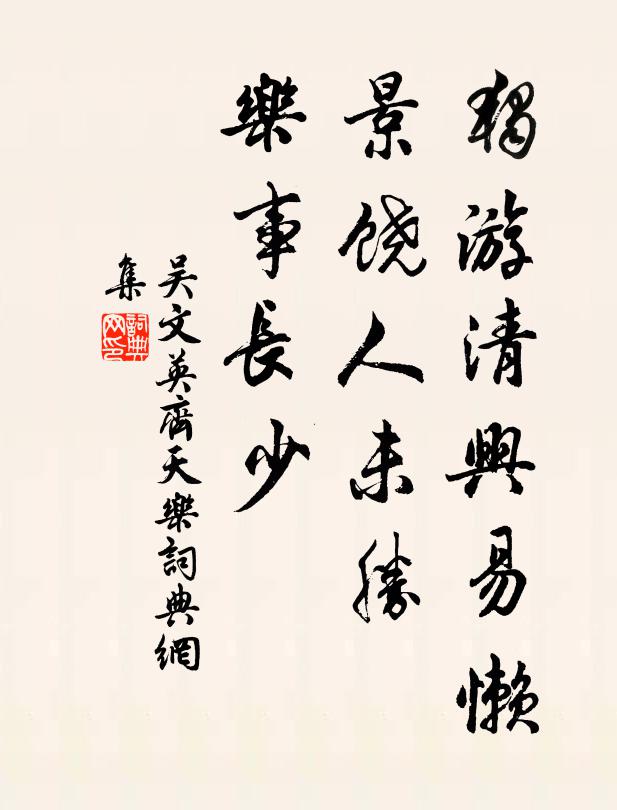 獨游清興易懶
景饶人未勝
樂事長少
吴文英齊天樂詞典網
集
詞典
网印